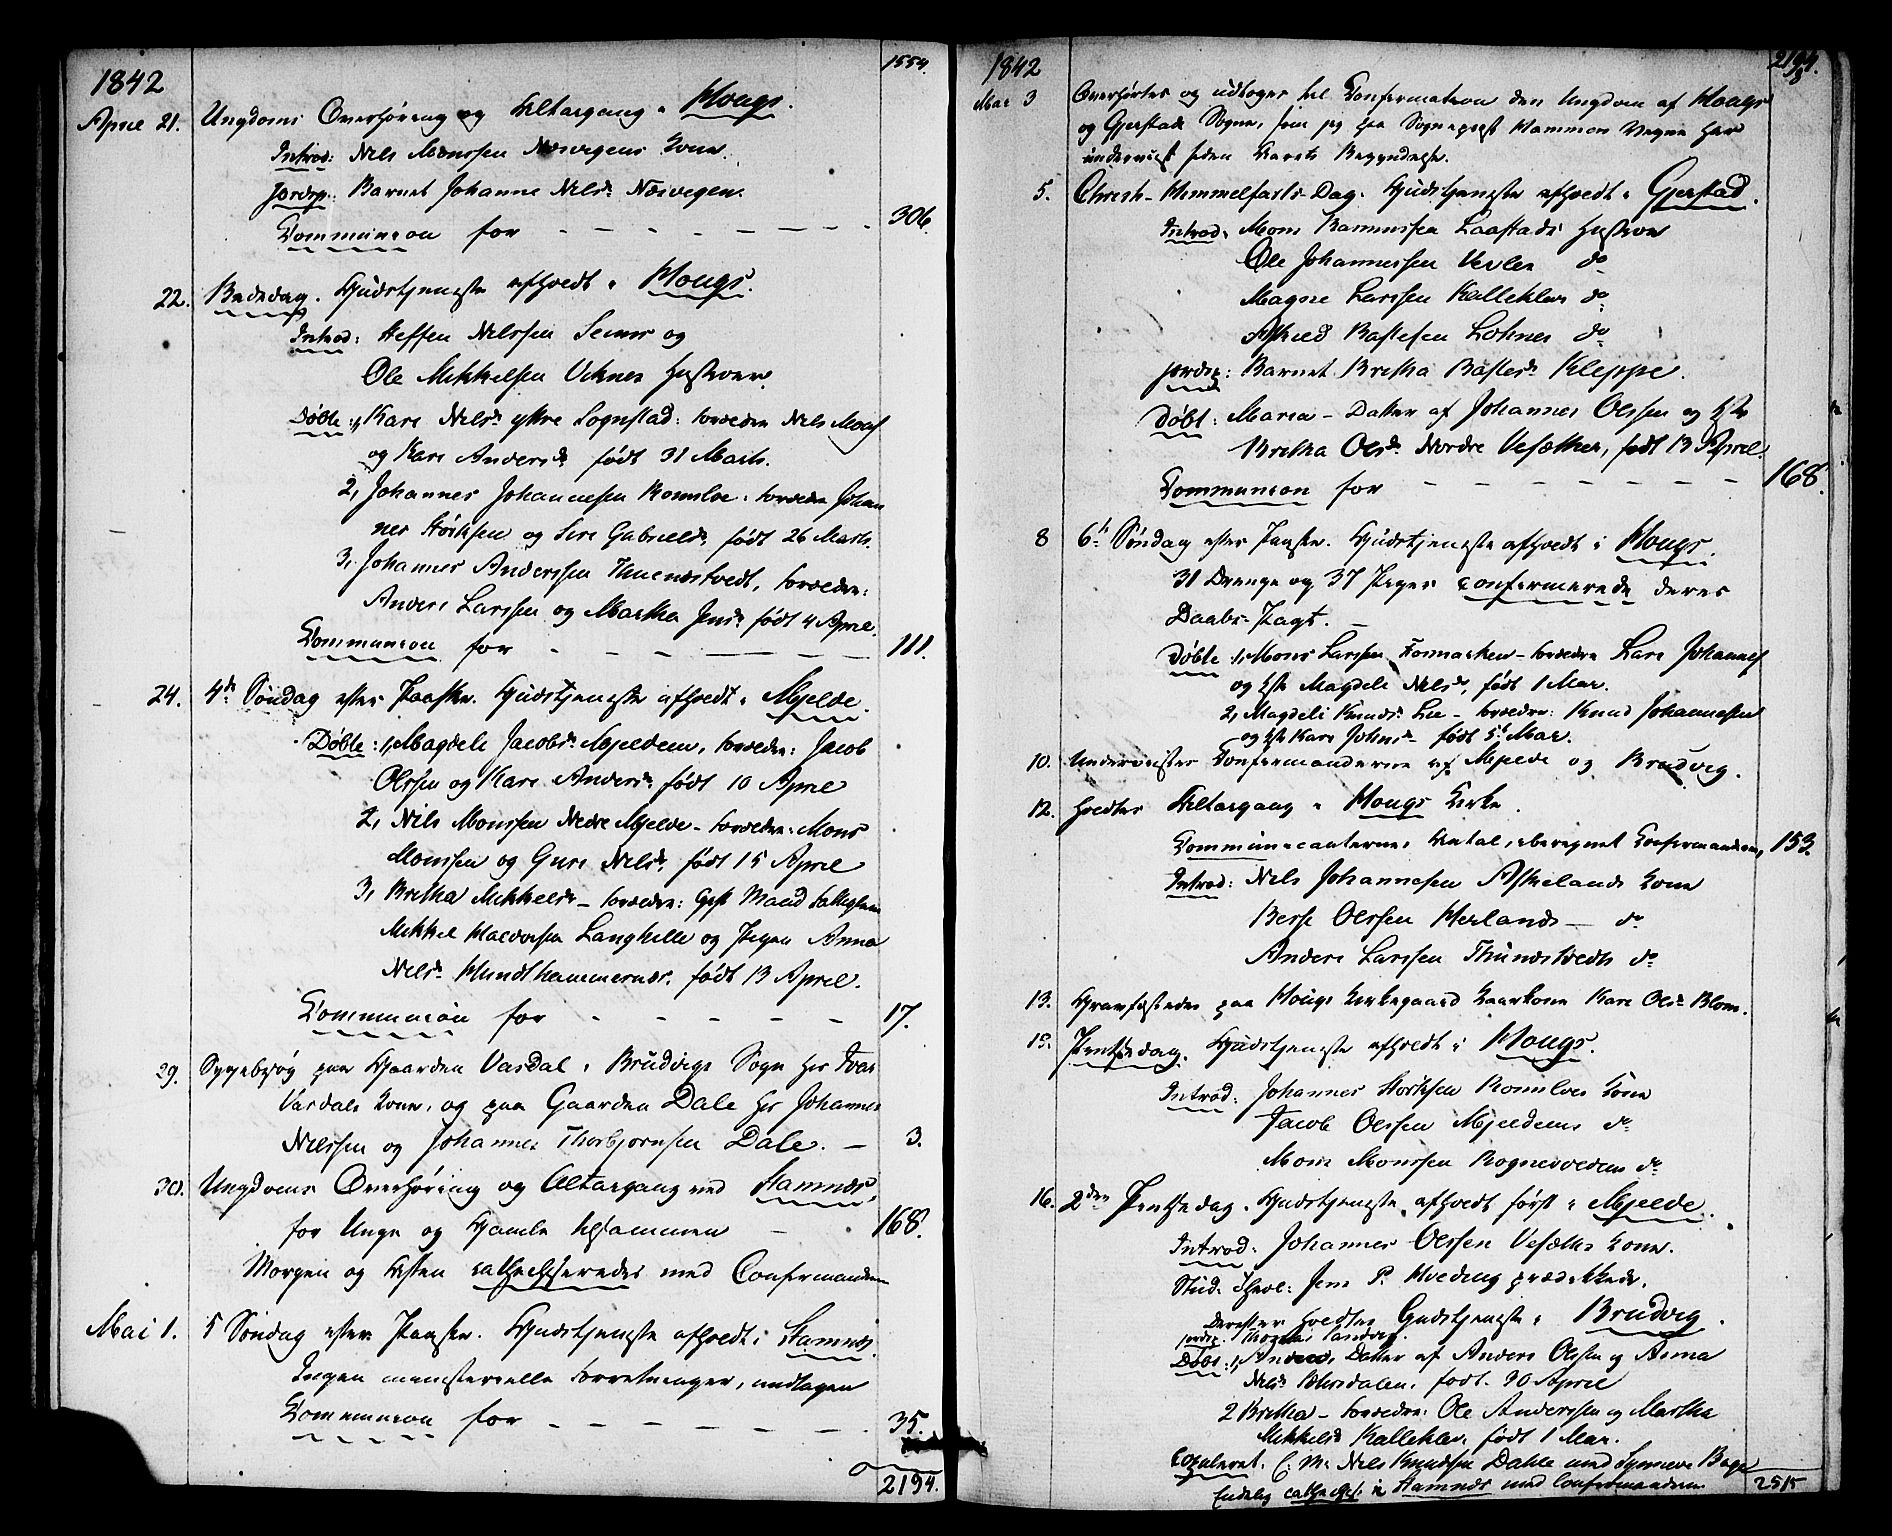 1842
1554.
April 21. Ungdoms Overhøring og Altargang i Hougs.
Introd: Nils Monssen Næsvegens Kone.
Jordsp: Barnet Johanne Nilsd. Næsvegen.
Communion for 306.
22. Bededag. Gudstjeneste afholdt i Hougs.
Introd: Steffen Nilssen Seims og
Ole Mikkelsen Viknes Hustruer.
Døbte: 1, Kari Nilsd. yttre Sognstad: Forældre Nils
og Kari Andersd. født 31 Marts.
2, Johannes Johannesen Romsloe: Forældre Johan
nes Størksen og Siri Gabrielsd. født 26 Marts.
3, Johannes Anderssen Thunestvedt, Forældre:
Anders Larssen og Martha Jensd. født 4 April.
Communion for 111.
24. 4de Søndag efter Paaske. Gudstjeneste afholdt i Mjelde.
Døbte: 1, Magdeli Jacobsd. Mjeldeim, Forældre: Jacob
Olssen og Kari Andersd. født 10 April
2, Nils Monssen Nedre Mjelde - Forældre: Mons
Monssen og Guri Nilsd. født 15 April
3, Britha Mikkelsd. - Forældre: Gift Mand
Mikkel Haldorsen Langhelle og Pigen Anna
Nilsd. Hundhammernæs. født 13 April.
Communion for 17.
29. Sygebesøg paa Gaarden Vardal i Brudvigs Sogn hos Ivar
Vardals Kone, og paa Gaarden Dale hos Johannes
Nilssen og Johannes Thorbjørnsen Dale. - 3.
30. Ungdoms Overhøring og Altargang ved Stamnæs,
for Unge og Gamle tilsammen - 168.
Morgen og Aften catheciseredes med Confirmanderne
Mai 1. 5 Søndag efter Paaske. Gudstjeneste afholdt i Stamnæs.
Ingen ministerielle Forretninger, undtagen
Communion for 35.
2194.
1842
2194.
Mai 3 Overhørtes og udtoges til Confirmation den Ungdom af Hougs
og Gjerstads Sogne, som jeg paa Sognepræst Vegne har
underviist siden Aarets Begyndelse.
5. Christi Himmelfarts-Dag. Gudstjeneste afholdt i Gjerstad.
Introd: Mons Rasmussen Laastads Hustrue
Ole Johannessen do
Magne Larssen Kalleklev do
Bastesen Lohnes do
Jordsp: Barnet Britha Bastesd. Kleppe.
Døbt: Maria - Datter af Johannes Olssen og Hst
Britha Olsd. Nordre Vesæther, født 13 April.
Communion for 168.
8 6te Søndag efter Paaske. Gudstjeneste afholdt i Hougs.
31 Drenge og 37 Piger confirmerede deres
Daabs-Pagt.
Døbte: 1, Mons Larssen - Forældre Lars Johannes
og Hst Magdeli Nilsd. født 1 Mai.
2, Magdeli Knudsd. Lie - Forældre: Knud Johannessen
og Hst Kari Johnsd. født 5t Mai.
10. Underviistes Confirmanderne af Mjelde og Brudvig.
12. Holdtes Altargang i Hougs Kirke.
Communicanternes Antal, iberegnet Confirmanderne, 153.
Introd: Nils Johannesen Askelands Kone
Berse Olssen Herlands - do
Anders Larssen Thunestvedts do
13. Gravfæstedes paa Hougs Kirkegaard Kaarkone Kari Olsd. Blom.
15. Pintsedag. Gudstjeneste afholdt i Hougs.
Introd: Johannes Størksen Romsloes Kone
Jacob Olssen Mjeldeims do
Mons Monssen do
16. 2den Pintsedag. Gudstjeneste afholdt først i Mjelde.
Introd: Johannes Olssen Vesæths Kone.
Stud. Theol: Jens P. Hveding prædikkede.
Derefter holdtes Gudstjeneste i Brudvig.
Jordsp.
Døbt: 1, Datter af Anders Olssen og Anna
Nilsd. født 30 April
2 Britha - Forældre: Ole Anderssen og Martha
Mikkelsd. Kalleklev. født 1 Mai.
Copuleret. Nils Knudsen Dahle med Synneve
Endelig i Stamnæs med Confirmanderne
2515